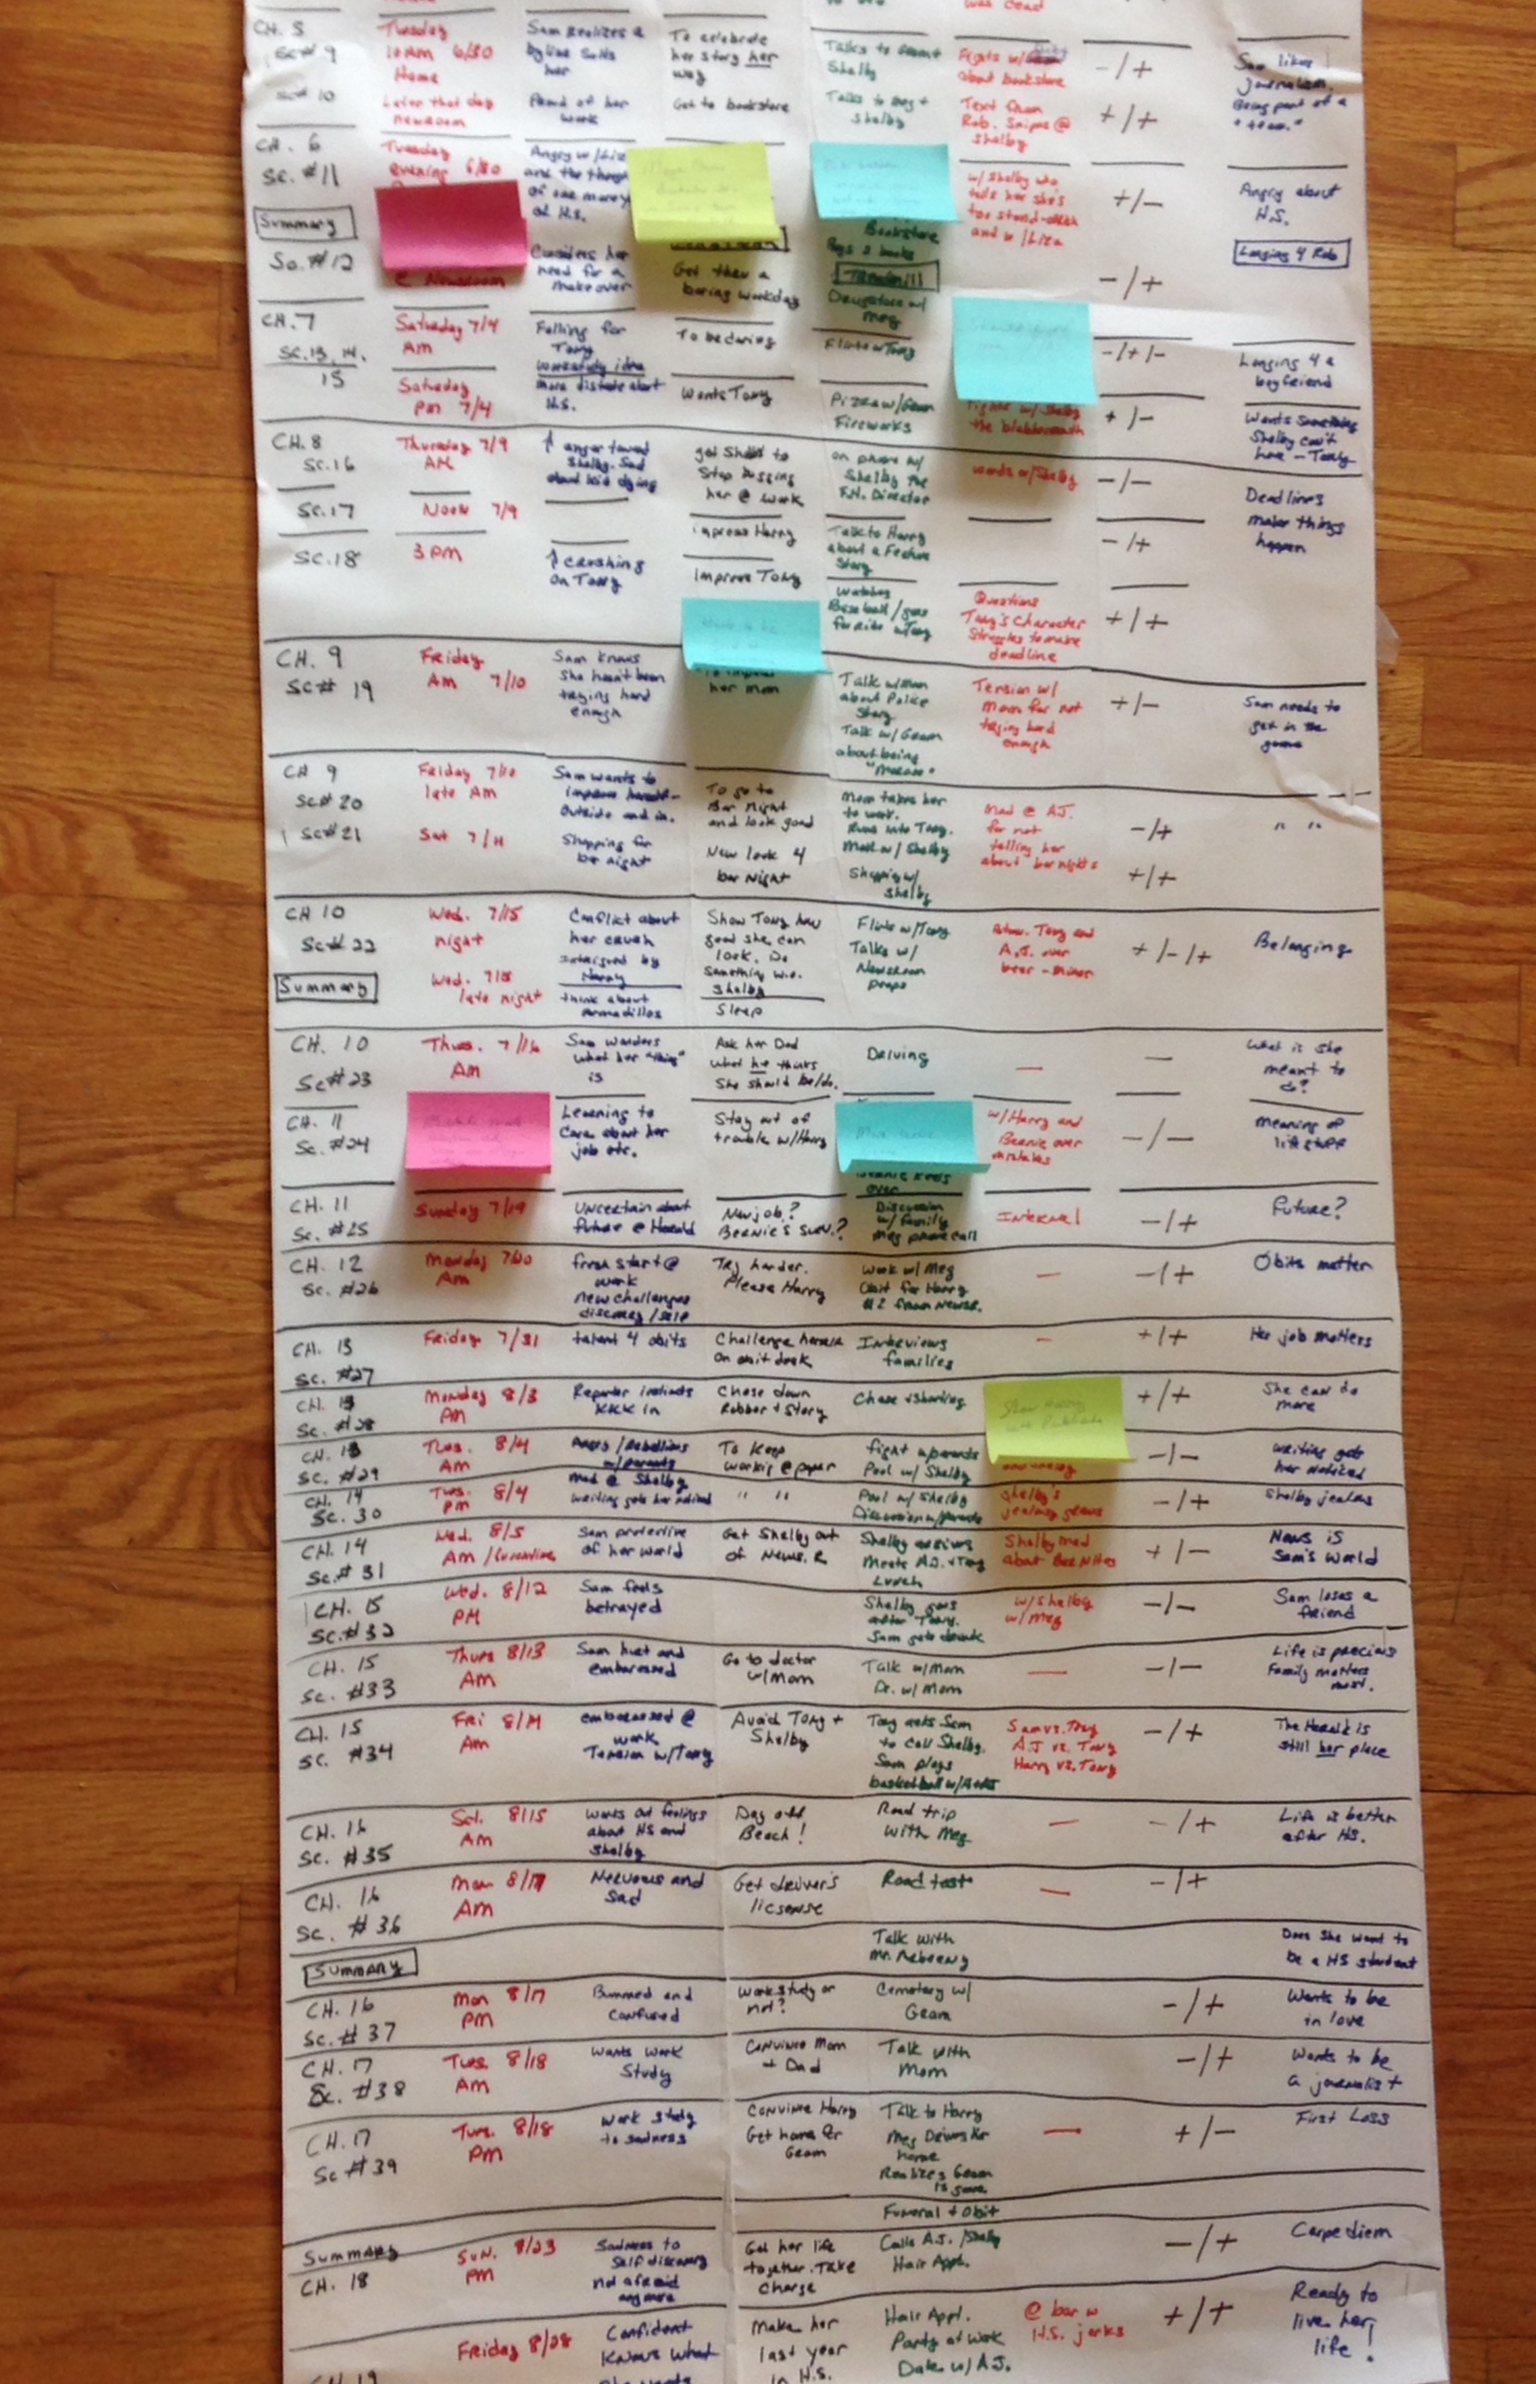 was dead
CH. 5
SC# 9
Tuesday
10AM 6/30
Home
Sam Realizes a
byline suits
her
To celebrate
her story her
way
Talks to Gram +
Shelby
Fights w/
about bookstore
-/+
Sam likes
journalism.
Being part of a
"team."
SC# 10
Later that day
newsroom
Proud of her
work
Get to bookstore
Talks to Meg +
Shelby
Text from
Rob. Snipes @
Shelby
+/+
CH. 6
SC. #11
Tuesday
evening 6/30
Angry w/Liza
and the thought
of one more yr
of H.S.
w/ Shelby who
tells her she's
too stand-offish
and w/Liza
+/-
Angry about
H.S.
Summary
Longing 4 Rob
Bookstore
Buys 2 books
Sc. #12
@ Newsroom
Considers her
need for a
makeover
Get thru a
boring workday
Tension!!!
Drugstore w/
Meg
-/+
CH. 7
SC. 13, 14,
15
Saturday 7/4
AM
Falling for
Tony
Workstudy idea
more distaste about
H.S.
To be daring
Flirts w/Tony
-/+/-
Longing 4 a
boyfriend
Saturday
PM 7/4
Wants Tony
Pizza w/Gram
Fireworks
Fights w/ Shelby
the blabbermouth
+/-
Wants something
Shelby can't
have - Tony
CH. 8
SC. 16
Thursday 7/9
AM
↑ anger toward
Shelby. Sad
about kid dying
get Shelb to
Stop bugging
her @ work
on phone w/
Shelby the
F.H. Director
words w/Shelby
-/-
Deadlines
make things
happen
SC. 17
Noon 7/9
impress Harry
Talk to Harry
about a Feature
Story
-/+
SC. 18
3 PM
↑ crushing
on Tony
Impress Tony
Watches
Baseball/goes
for ride w/Tony
Questions
Tony's character
Struggles to make
deadline
+/+
CH. 9
SC# 19
Friday
AM 7/10
Sam knows
she hasn't been
trying hard
enough
To impress
her mom
Talk w/Mom
about Police
Story
Talk w/ Gram
about being
"Morose"
Tension w/
Mom for not
trying hard
enough
+/-
Sam needs to
get in the
game
CH 9
SC# 20
Friday 7/10
late AM
Sam wants to
improve herself -
outside and in.
To go to
Bar Night
and look good
Mom takes her
to work.
Runs into Tony.
Mall w/ Shelby
Mad @ A.J.
for not
telling her
about bar nights
-/+
" "
SC# 21
Sat 7/11
Shopping for
bar night
New look 4
bar Night
Shopping w/
Shelby
+/+
CH 10
SC# 22
Wed. 7/15
night
Conflict about
her crush
intrigued by
Harry
Show Tony how
good she can
look. Do
something w.o.
Shelby
Flirts w/Tony
Talks w/
Newsroom
peeps
Tony and
A.J. over
beer - minor
+/-/+
Belonging
Summary
Wed. 7/15
late night
think about
armadillos
Sleep
CH. 10
SC# 23
Thurs. 7/16
AM
Sam wonders
what her "thing"
is
Ask her Dad
what he thinks
She should be/do.
Driving
—
—
What is she
meant to
do?
CH. 11
SC. #24
Learning to
Care about her
job etc.
Stay out of
trouble w/Harry
w/Harry and
Bernie over
mistakes
-/-
meaning of
life stuff
CH. 11
SC. #25
Sunday 7/19
Uncertain about
future @ Herald
New job?
Bernie's surv.?
Discussion
w/ family
Meg phone call
Internal
-/+
Future?
CH. 12
SC. #26
Monday 7/20
AM
fresh start @
work
new challenges
discovery/self
Try harder.
Please Harry
Work w/ Meg
Obit for Harry
-
-/+
Obits matter
CH. 13
SC. #27
Friday 7/31
talent 4 obits
Challenge herself
on obit desk
Interviews
families
-
+/+
Her job matters
CH. 13
SC. #28
Monday 8/3
AM
Reporter instincts
kick in
Chase down
Robber + Story
Chase + Shooting
+/+
She can do
more
CH. 13
SC. #29
Tues. 8/4
AM
Angry/Rebellious
w/parents
To keep
workig @ paper
fight w/parents
Pool w/ Shelby
-/-
Writing gets
her noticed
CH. 14
SC. 30
Tues. 8/4
PM
Mad @ Shelby
Writing gets her noticed
" "
Pool w/ Shelby
Discussion w/parents
Shelby's
jealousy grows
-/+
Shelby jealous
CH. 14
SC. # 31
Wed. 8/5
AM/lunchtime
Sam protective
of her world
Get Shelby out
of News. R
Shelby arrives
Meets A.J. + Tony
Lunch
Shelby mad
about Bar Nites
+/-
News is
Sam's World
CH. 15
SC. #32
Wed. 8/12
PM
Sam feels
betrayed
Shelby goes
after Tony.
Sam gets drunk
w/Shelby
w/ Meg
-/-
Sam loses a
friend
CH. 15
SC. #33
Thurs 8/13
AM
Sam hurt and
embarassed
Go to doctor
w/Mom
Talk w/Mom
Dr. w/ Mom
—
-/-
Life is precious
Family matters
most.
CH. 15
SC. #34
Fri 8/14
AM
embarassed @
work
Tension w/Tony
Avoid Tony +
Shelby
Tony asks Sam
to call Shelby.
Sam plays
basketball w/
Sam vs. Tony
A.J vs. Tony
Harry vs. Tony
-/+
The Herald is
still her place
CH. 16
SC. #35
Sat. 8/15
AM
Works out feelings
about HS and
Shelby
Day off
Beach!
Road trip
with Meg
—
-/+
Life is better
after HS.
CH. 16
SC. # 36
Mon 8/17
AM
Nervous and
Sad
Get driver's
license
Road test
—
-/+
Summary
Talk with
Does she want to
be a HS student
CH. 16
SC. # 37
Mon 8/17
PM
Bummed and
confused
Workstudy or
not?
Cemetery w/
Gram
-/+
Wants to be
in love
CH. 17
SC. #38
Tues. 8/18
AM
Wants Work
Study
Convince Mom
+ Dad
Talk with
Mom
-/+
Wants to be
a journalist
CH. 17
SC #39
Tues. 8/18
PM
Work study
to sadness
Convince Harry
Get home for
Gram
Talk to Harry
Meg Drives her
home
Realizes Gram
is gone
—
+/-
First Loss
Funeral + Obit
Summary
CH. 18
SUN. 8/23
PM
Sadness to
Self discovery
not afraid
anymore
Get her life
together. Take
charge
Calls A.J./Shelby
Hair Appt.
-/+
Carpe diem
Friday 8/28
Confident
Knows what
Make her
last year
in H.S.
Hair Appt.
Party at Work
Date w/ A.J.
@ bar w
H.S. jerks
+/+
Ready to
live her
life!
CH. 19